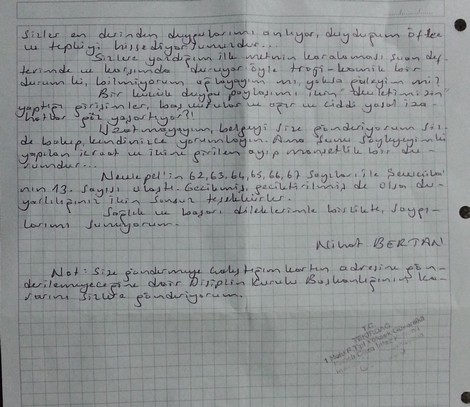 Sizler en derinden duygularımı anlıyor, duyduğum öfke
ve tepkiyi hissediyorsunuzdur...
Sizlere yazdığım ilk metnin karalaması şuan def
terimde ve karşımda duruyor öyle traji-komik bir
durum ki, bilmiyorum ağlayayım mı, yoksa güleyim mi?
Bir küçük duygu paylaşımı için "devletimizin"
yaptığı girişimler, başvurular ve ağır ve ciddi yasal iza-
hatlar göz yaşartıyor?!
Uzatmayayım, belgeyi size gönderiyorum siz
de bakıp, kendinizce yorumlayın. Ama şunu söyleyeyim ki
yapılan icraat ve içine girilen ayıp manşetlik bir du-
rumdur...
Newepel'in 62,63,64,65,66,67 Sayıları ile
'nın 13. Sayısı ulaştı. Gecikmiş, geciktirilmiş de olsa du-
yarlılığınız için sonsuz teşekkürler.
Sağlık ve başarı dileklerimle birlikte, saygı-
larımı sunuyorum.
Nihat BERTAN
Not: Size göndermeye çalıştığım kartın adresine gön-
derilemeyeceğine dair Disiplin Kurulu Başkanlığının ka-
rarını sizlere gönderiyorum.
T.C.